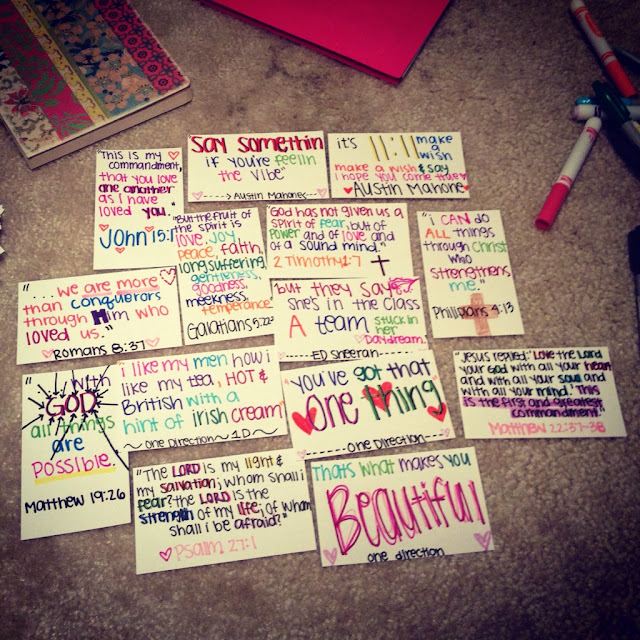 "This is my
commandment,
that you love
one another
as I have
loved you."
John 15:1
Say Somethin
if you're feelin
the vibe"
Austin Mahone
it's 11:11 make
a
wish
make a wish & say
I hope you come true
Austin Mahone
"But the fruit of
the spirit is
love, joy
peace, faith,
longsuffering,
gentleness,
goodness,
meekness,
temperance"
Galatians 5:22
"God has not given us a
spirit of fear, but of
power and of love and
of a sound mind."
2 Timothy 1:7
"I can do
ALL things
through Christ
who
strengthens
me."
Phillipians 4:13
"....we are more
than conquerors
through Him who
loved us."
Romans 8:37
but they say
she's in the Class
A team stuck in
her
Daydream.
Ed Sheeran
"Jesus replied; 'Love the Lord
your God with all your heart
and with all your soul and
with all your mind.' This
is the first and greatest
commandment."
Matthew 22:37-38
"With
GOD
all things
are
possible."
Matthew 19:26
i like my men how i
like my tea, HOT &
British with a
hint of irish cream"
One Direction 1D
"You've got that
One Thing"
One Direction
"The LORD is my light &
my salvation; whom shall i
fear? the LORD is the
strength of my life; of whom
shall i be afraid?"
Psalm 27:1
Thats what makes you
Beautiful
one direction